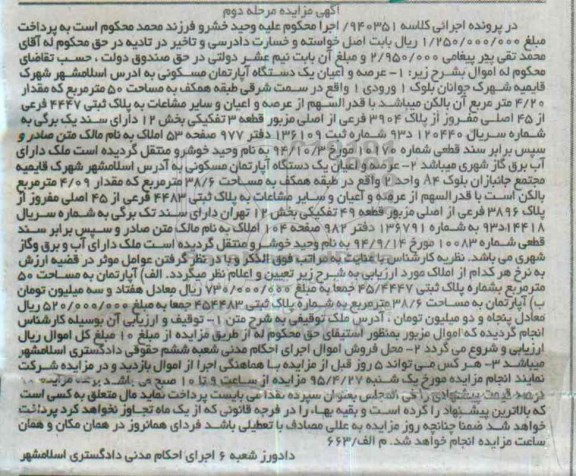 آگهی مزایده مرحله دوم
در پرونده اجرائی کلاسه ۹۴۰۳۵۱/ اجرا محکوم علیه وحید خشرو فرزند محمد محکوم است به پرداخت
مبلغ ۱/۲۵۰/۰۰۰/۰۰۰ ریال بابت اصل خواسته و خسارت دادرسی و تاخیر در تادیه در حق محکوم له آقای
محمد تقی پیر پیغامی ۲/۹۵۰/۰۰۰ و مبلغ آن بابت نیم عشر دولتی در حق صندوق دولت ، حسب تقاضای
محکوم له اموال بشرح زیر: ۱- عرصه و اعیان یک دستگاه آپارتمان مسکونی به ادرس اسلامشهر شهرک
قایمیه شهرک جوانان بلوک ۱ ورودی ۱ واقع در سمت شرقی طبقه همکف به مساحت ۵۰ مترمربع که مقدار
۴/۲۰ متر مربع آن بالکن میباشد با قدرالسهم از عرصه و اعیان و سایر مشاعات به پلاک ثبتی ۴۴۴۷ فرعی
از ۴۵ اصلی مفروز از پلاک ۳۹۰۴ فرعی از اصلی مزبور قطعه ۳ تفکیکی بخش ۱۲ دارای سند یک برگی به
شماره سریال ۱۲۰۴۴۰ د۹۳ شماره ثبت ۱۳۶۱۰۹ دفتر ۹۷۷ صفحه ۵۳ املاک به نام مالک متن صادر و
سپس برابر سند قطعی شماره ۱۰۱۷۰ مورخ ۹۴/۱۰/۳ به نام وحید خوشرو منتقل گردیده است ملک دارای
آب برق گاز شهری میباشد ۲- عرصه و اعیان یک دستگاه آپارتمان مسکونی به آدرس اسلامشهر شهرک قایمیه
مجتمع جانبازان بلوک A۴ واحد ۲ واقع در طبقه همکف به مساحت ۳۸/۶ مترمربع که مقدار ۴/۰۹ مترمربع
بالکن است با قدرالسهم از عرصه و اعیان و سایر مشاعات به پلاک ثبتی ۴۴۸۳ فرعی از ۴۵ اصلی مفروز از
پلاک ۳۸۹۶ فرعی از اصلی مزبور قطعه ۴۹ تفکیکی بخش ۱۲ تهران دارای سند تک برگی به شماره سریال
۱۴۴۱۸د۹۳ به شماره ثبت ۱۳۶۷۹۱ دفتر ۹۸۲ صفحه ۱۰۴ املاک به نام مالک متن صادر و سپس برابر سند
قطعی شماره ۱۰۰۸۳ مورخ ۹۴/۹/۱۴ به نام وحید خوشرو منتقل گردیده است ملک دارای آب و برق وگاز
شهری می باشد. نظریه کارشناس با عنایت به مراتب فوق الذکر و با در نظر گرفتن عوامل موثر در قضیه ارزش
به نرخ هر کدام از املاک مورد ارزیابی به شرح زیر تعیین و اعلام نظر میگردد. الف) آپارتمان به مساحت ۵۰
مترمربع بشماره پلاک ثبتی ۴۵/۴۴۴۷ جمعا به مبلغ ۷۳۰/۰۰۰/۰۰۰ ریال معادل هفتاد و سه میلیون تومان
ب) آپارتمان به مساحت ۳۸/۶ مترمربع به شماره پلاک ثبتی ۴۵۴۴۸۳ جمعا به مبلغ ۵۲۰/۰۰۰/۰۰۰ ریال
معادل پنجاه و دو میلیون تومان ، آدرس ملک توقیفی به شرح متن ۱- توقیف و ارزیابی آن بوسیله کارشناس
انجام گردیده که اموال مزبور بمنظور استیفای حق محکوم له از طریق مزایده از مبلغ ۱۰ مبلغ کل اموال ریال
ارزیابی و شروع می گردد ۲- محل فروش اموال اجرای احکام مدنی شعبه ششم حقوقی دادگستری اسلامشهر
میباشد ۳- هر کس می تواند ۵ روز قبل از مزایده با هماهنگی اجرا از اموال بازدید و در مزایده شرکت
نمایند انجام مزایده مورخ یک شنبه ۹۵/۴/۲۷ مزایده از ساعت ۹ تا ۱۰ صبح می باشد برنده مزایده ۱۰
درصد قیمت پیشنهادی را فی المجلس بعنوان سپرده نقدا می بایست پرداخت نماید مال متعلق به کسی است
که بالاترین پیشنهاد را کرده است و بقیه بها، را در فرجه قانونی که از یک ماه تجاوز نخواهد کرد پرداخت
خواهد شد ضمنا چنانچه روز مزایده به عللی مصادف با تعطیلی باشد فردای همانروز در همان مکان و همان
ساعت مزایده انجام خواهد شد. م الف/۶۶۳
دادورز شعبه ۶ اجرای احکام مدنی دادگستری اسلامشهر